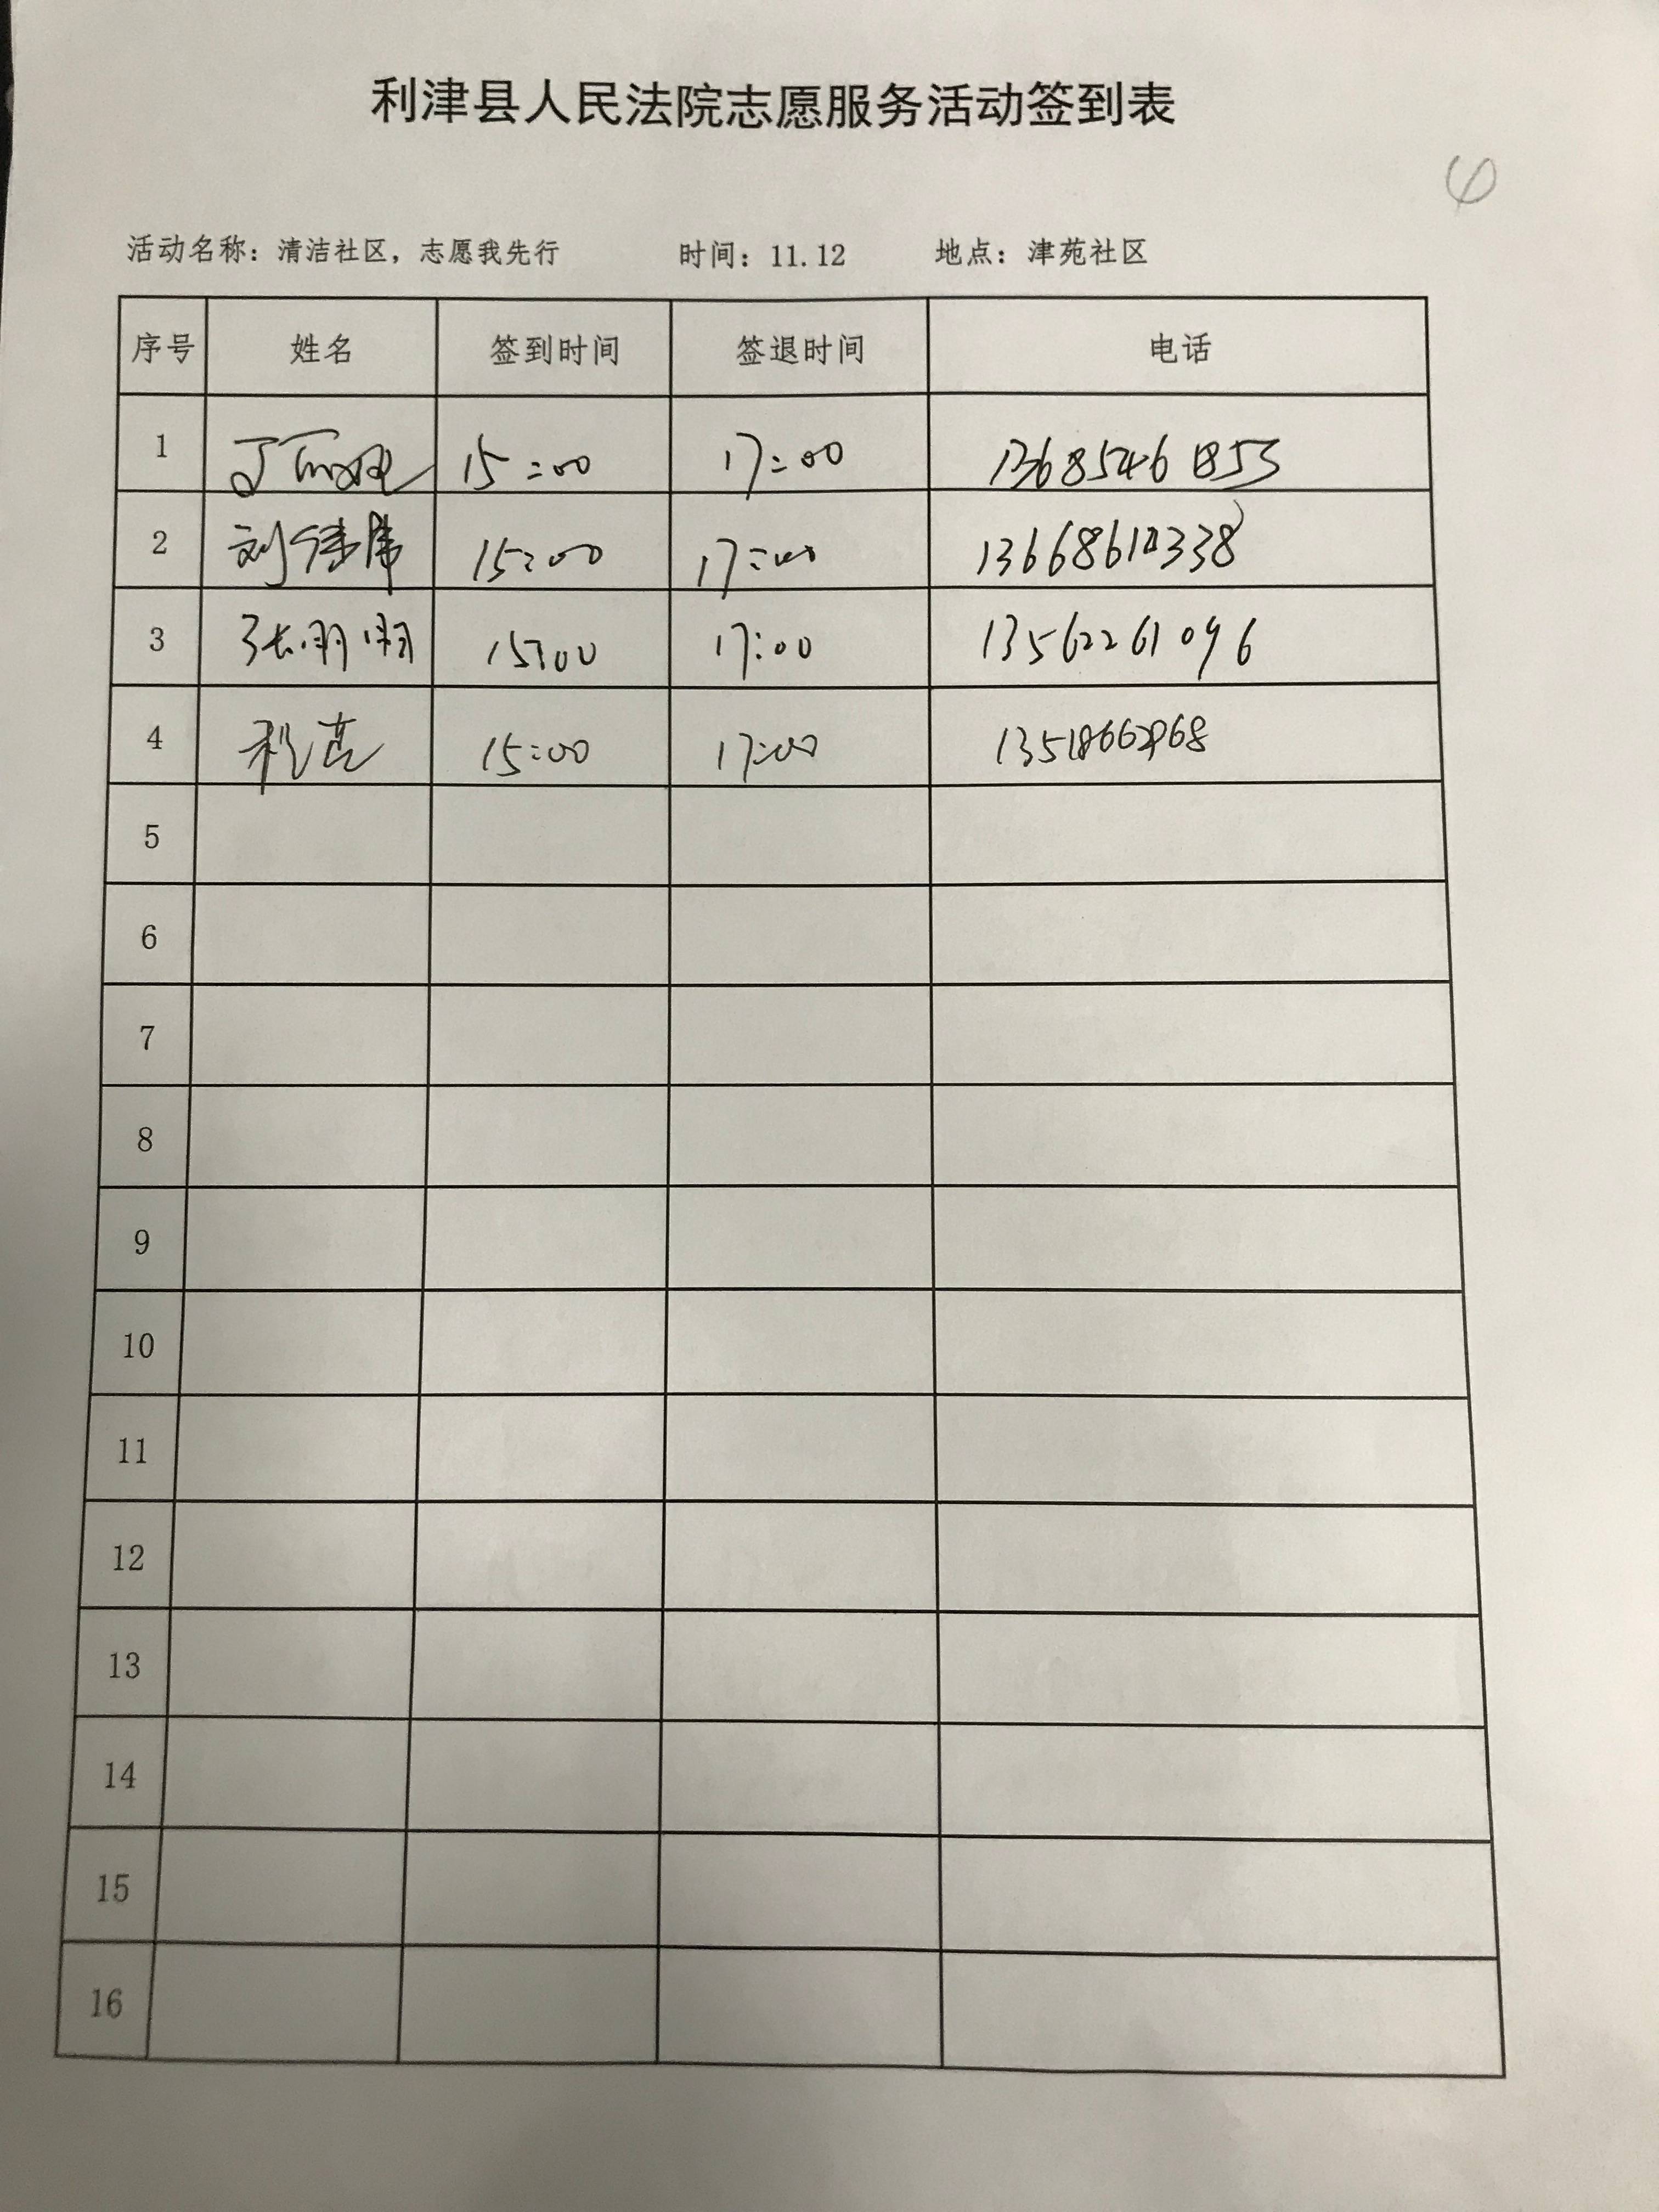 利津县人民法院志愿服务活动签到表
活动名称：清洁社区，志愿我先行 时间：11.12 地点：津苑社区
序号 姓名 签到时间 签退时间 电话
1 15:00 17:00 13685461853
2 15:00 17:00
3 张明明 15:00 17:00 13562261096
4 程亮 15:00 17:00
5
6
7
8
9
10
11
12
13
14
15
16